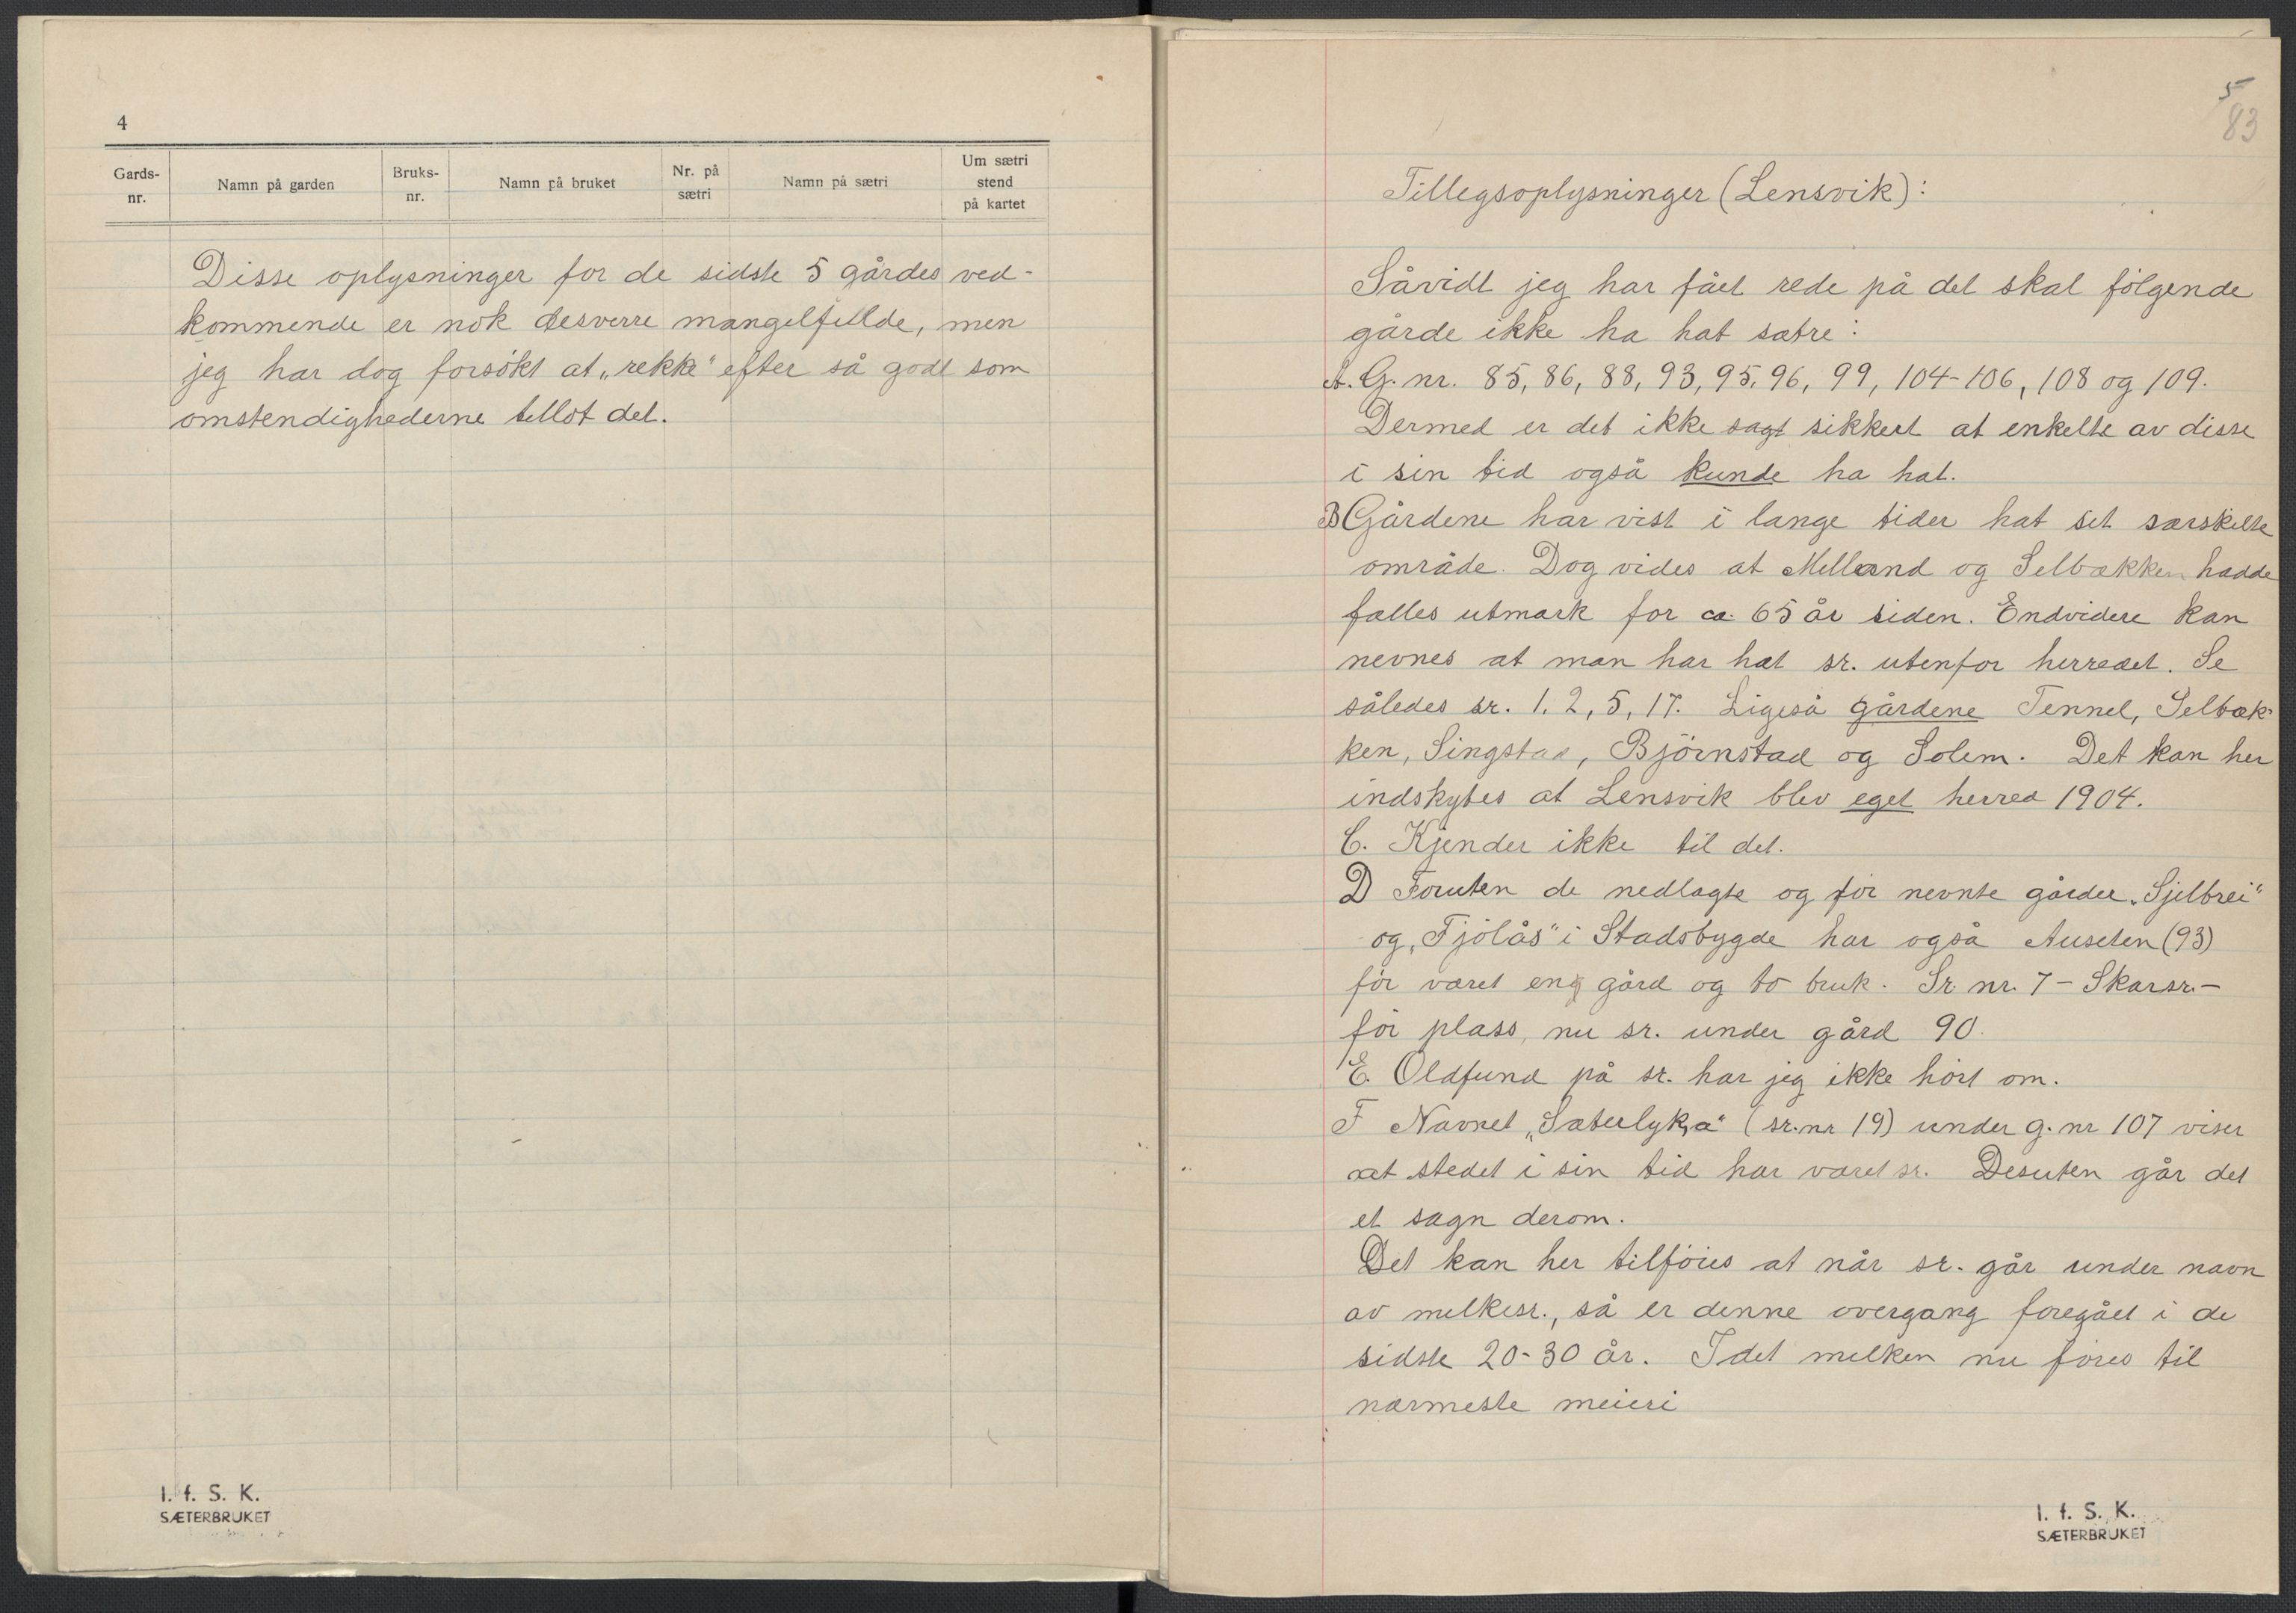 4
Gards-
nr.
Namn på garden
Bruks-
nr.
Namn på bruket
Nr. på
sætri
Namn på sætri
Um sætri
stend
på kartet
Disse oplysninger for de sidste 5 gårdes ved-
kommende er nok desverre mangelfulde, men
jeg har dog forsökt at „rekke" efter så godt som
omstendighederne tillot det.
I. f. S. K.
SÆTERBRUKET
5
83
Tillegsoplysninger (Lensvik):
Såvidt jeg har fået rede på det skal fölgende
gårde ikke ha hat sætre:
A. G. nr. 85, 86, 88, 93, 95, 96, 99, 104-106, 108 og 109.
Dermed er det ikke sagt sikkert at enkelte av disse
i sin tid også kunde ha hat.
B Gårdene har vist i lange tider hat sit særskilte
område. Dog vides at Melland og Selbækken hadde
fælles utmark for ca. 65 år siden. Endvidere kan
nevnes at man har hat sr. utenfor herredet. Se
således sr. 1, 2, 5, 17. Ligeså gårdene Tennel, Selbæk-
ken, Singstad, Björnstad og Solem. Det kan her
indskytes at Lensvik blev eget herred 1904.
C. Kjender ikke til det.
D Foruten de nedlagte og för nevnte gårder „Sjelbrei"
og „Fjölås" i Stadsbygde har også Auseten (93)
för været eng gård og to bruk. Sr. nr. 7 - Skarsr. -
för plass, nu sr. under gård 90.
E. Oldfund på sr. har jeg ikke hört om.
F Navnet „Sæterlykja" (sr. nr 19) under g. nr 107 viser
at stedet i sin tid har været sr. Desuten går det
et sagn derom.
Det kan her tilföies at når sr. går under navn
av melkesr., så er denne overgang foregået i de
sidste 20-30 år. Idet melken nu föres til
nærmeste meieri
I. f. S. K.
SÆTERBRUKET